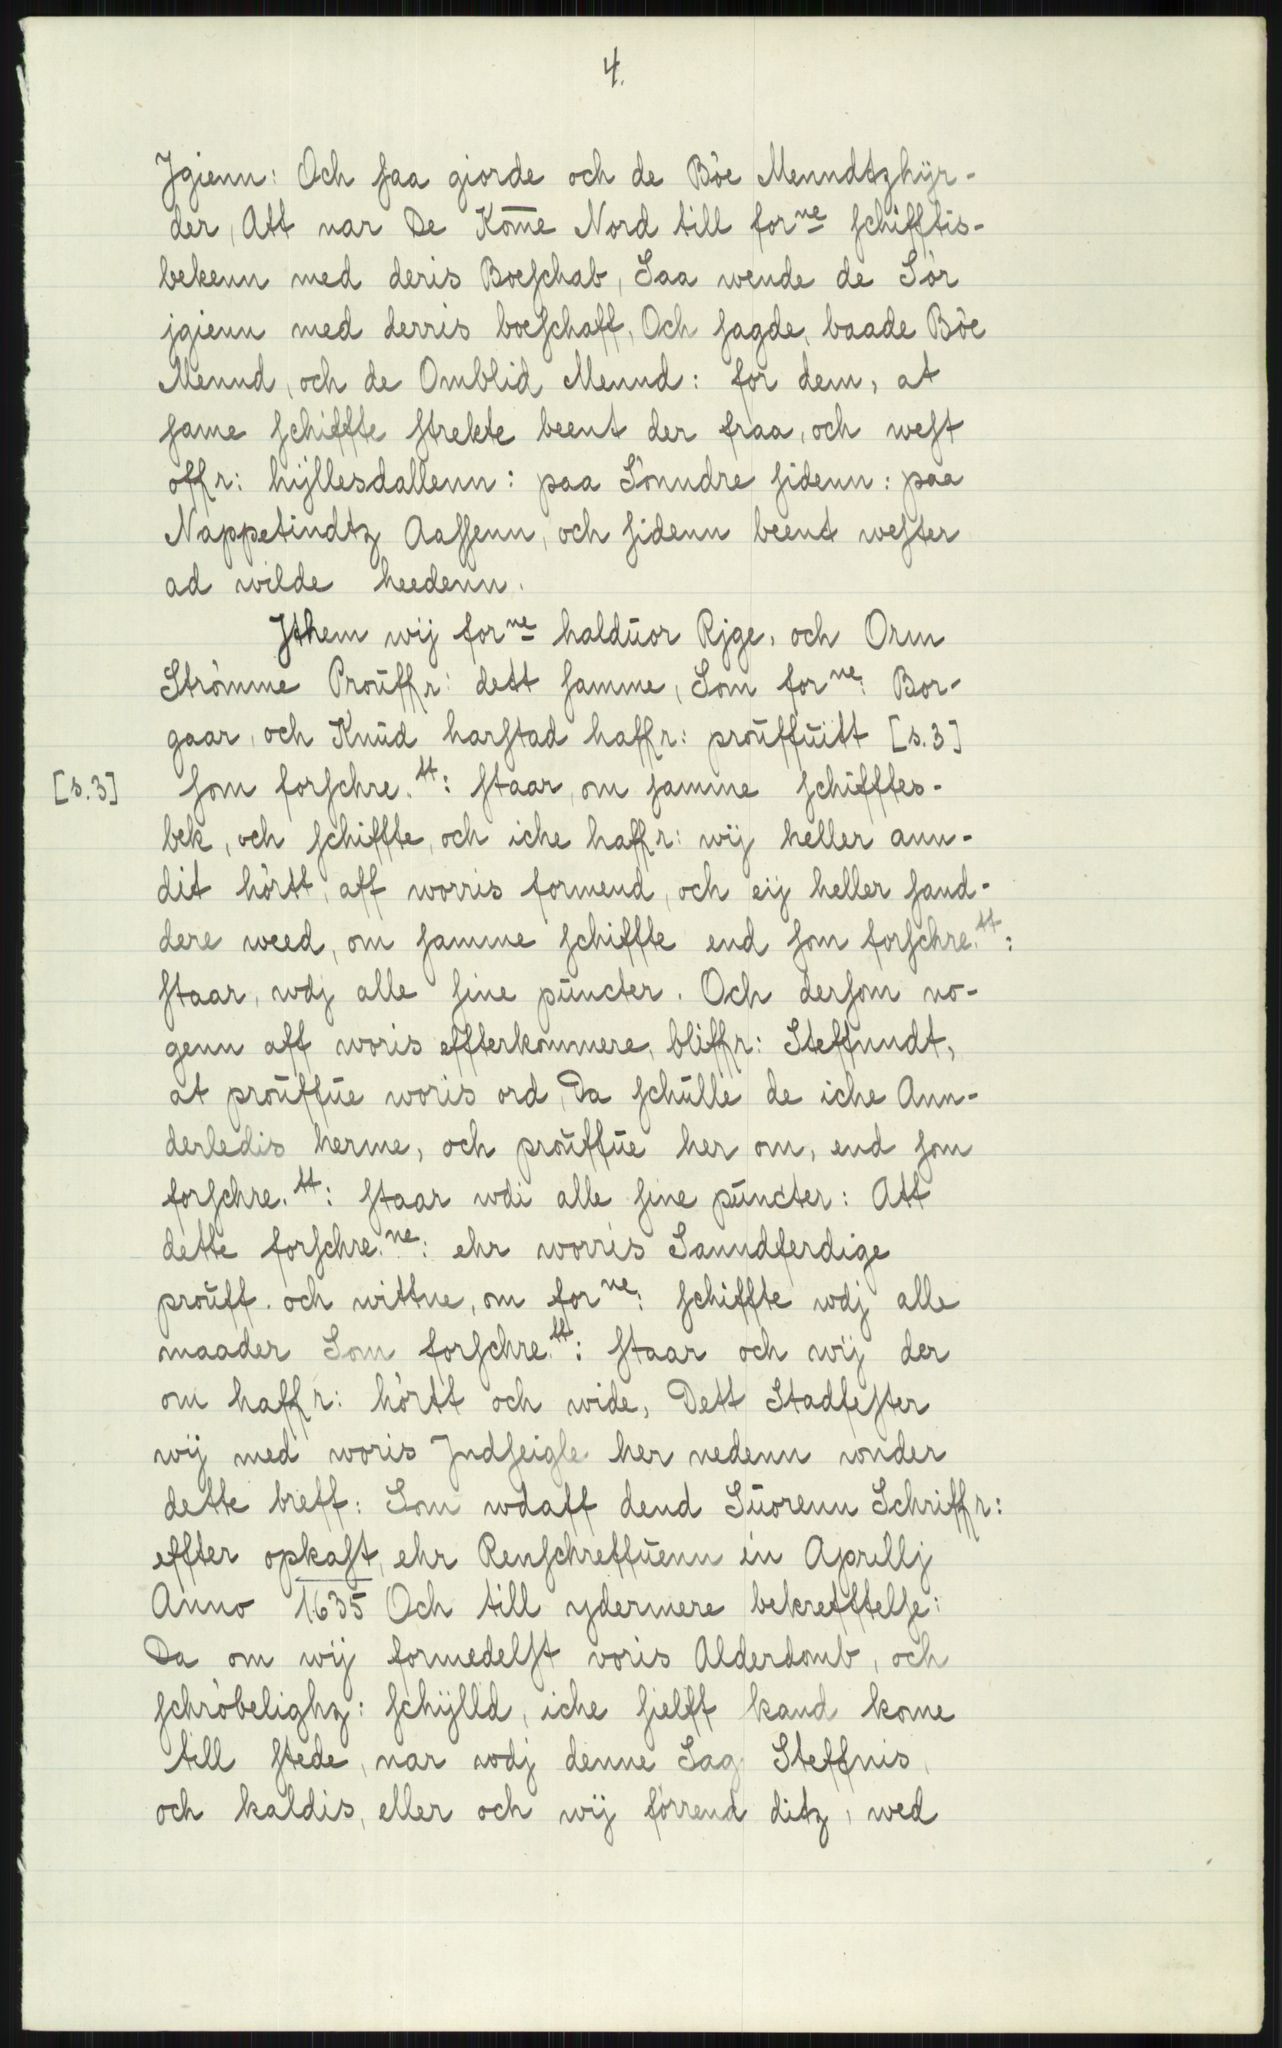 4.
Jgienn: Och saa giorde och de Böe Menndtzhÿr-
der, Att nar De Kom̅e Nord till forne schifftis-
bekenn med deris Boeschab, Saa wende de Sör
jgienn med derris boeschaff, Och sagde, baade Böe
Mennd, och de Omblid Mennd: for dem, at
same schiffte strekte beent der fraa, och west
offr: hÿllesdallenn: paa Sönndre sidenn: paa
Nappetindtz Aassenn, och sidenn beent wester
ad wilde heedenn.
Jthem wij forne halduor Rjge, och Orm
Strömme Prouffr: dett samme, Som forne: Bor-
gaar, och Knud harstad haffr: prouffuitt [s.3]
[s.3] som forschre.tt: staar, om samme schifftes-
bek, och schiffte, och iche haffr: wij heller ann-
dit hörtt, aff worris formend, och eij heller sand-
dere weed, om samme schiffte end som forschre.tt:
staar, wdj alle sine puncter. Och dersom no-
genn aff woris effterkommere, bliffr: Steffnndt,
at prouffue woris ord, Da schulle de iche Ann-
derledis herme, och prouffue her om, end som
forschre.tt: staar wdi alle sine puncter: Att
dette forschre.ne: ehr worris Sanndferdige
prouff. och wittne, om forne: schiffte wdj alle
maader Som forschre.tt: staar och wij der
om haffr: hörtt och wide, Dett Stadfester
wij med woris Jndseigle her nedenn wnder
dette breff: Som wdaff dend Suorenn Schriffr:
effter opkast, ehr Renschreffuenn in Aprillj
Anno 1635 Och till ydermere bekrefftelse:
Da om wij formedelst voris Alderdomb, och
schröbelighz: schÿlld, iche sielff kand kome
till stede, nar wdj denne Sag Steffnis,
och kaldis, eller och wij förrend ditz, wed